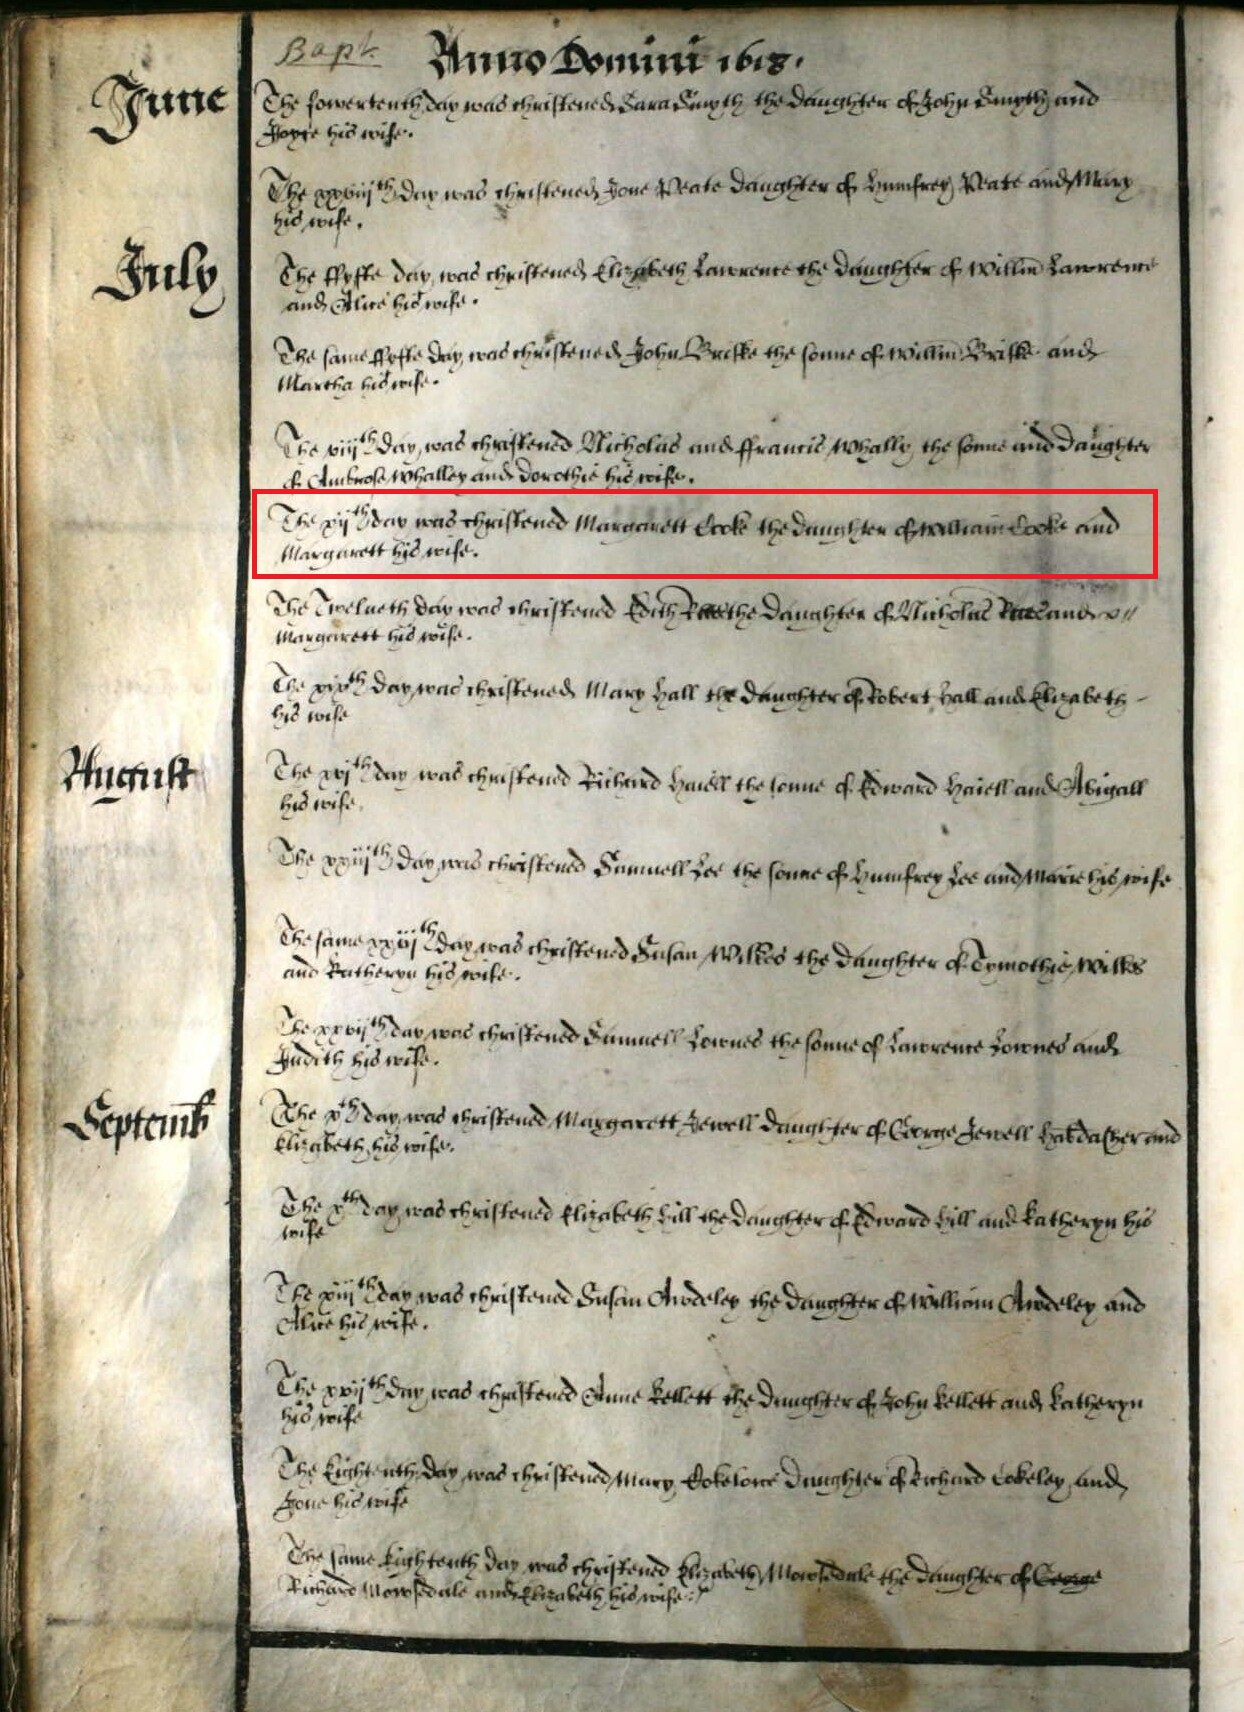 Bapt.
Anno Domini 1618.
June
The fowertenth day was christened Sara Smyth the daughter of John Smyth and
Joyce his wife.
The xxviijth day was christened Jone Peate daughter of Humfrey Peate and Mary
his wife.
July
The ffyfte day was christened Elizabeth Lawrence the daughter of Willm Lawrence
and Alice his wife.
The same ffyfte day was christened John Briske the sonne of Willm Briske and
Martha his wife.
The viijth day was christened Nicholas and ffrancis Whally the sonne and daughter
of Ambrose Whalley and Dorothie his wife.
The xijth day was christened Margarett Cooke the daughter of William Cooke and
Margarett his wife.
The Twelueth day was christened Edith the daughter of Nicholas and
Margarett his wife.
The xixth day was christened Mary Hall the daughter of Robert Hall and Elizabeth
his wife
August
The xvjth day was christened Richard the sonne of Edward and Abigall
his wife.
The xxiijth day was christened Samuell Lee the sonne of Humfrey Lee and Marie his wife
The same xxiijth day was christened Susan Wilkes the daughter of Tymothie Wilkes
and Katheryn his wife.
The xxvijth day was christened Samuell Lownes the sonne of Lawrence Lownes and
Judith his wife.
Septemb
The xth day was christened Margarett Jewell daughter of George Jewell Habdasher and
Elizabeth his wife.
The xth day was christened Elizabeth Hill the daughter of Edward Hill and Katheryn his
wife
The xiijth day was christened Susan Awdeley the daughter of William Awdeley and
Alice his wife.
The xvijth day was christened Anne Kellett the daughter of John Kellett and Katheryn
his wife
The Eightenth day was christened Mary daughter of Richard Cokeley and
Jone his wife
The same Eightenth day was christened Elizabeth Mowsdale the daughter of George
Richard Mowsdale and Elizabeth his wife